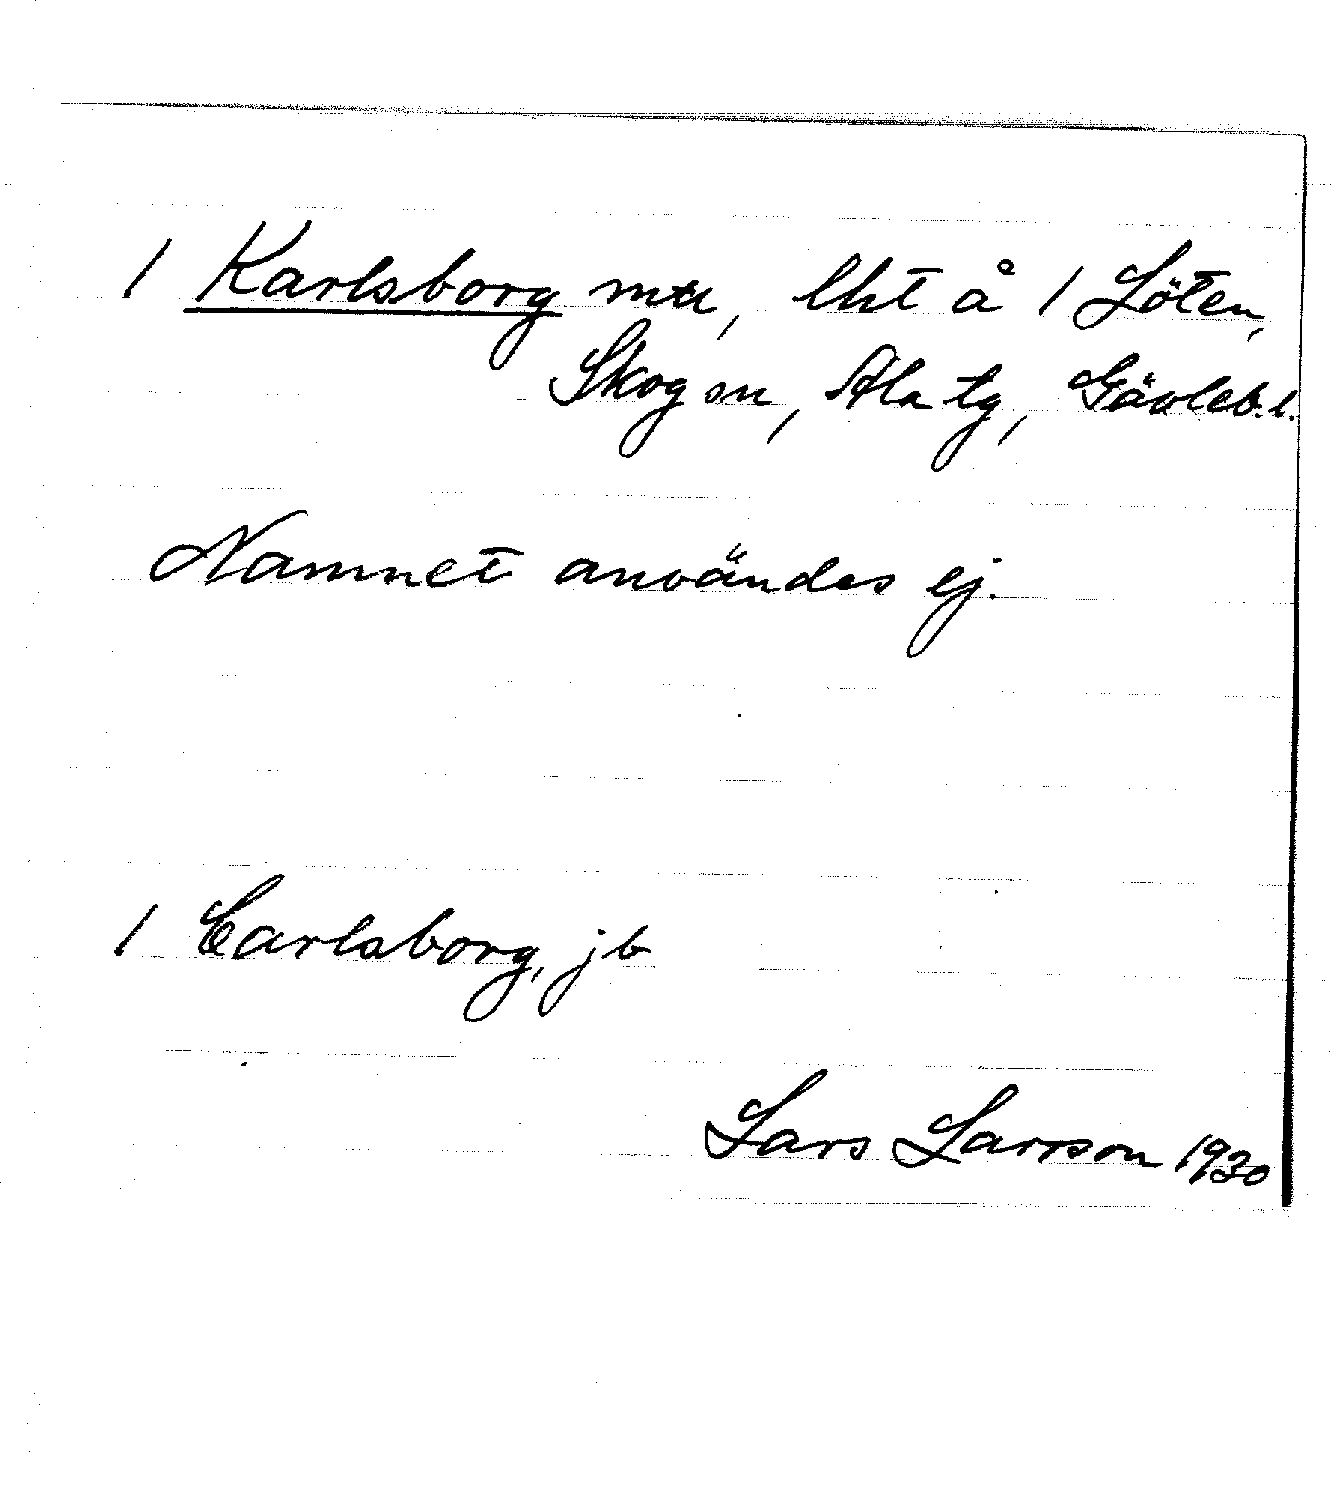 1 Karlsborg mtr, lht å 1 Löten,
Skog sn, Ala tg, Gävleb. l.
Namnet användes ej.
1 Carlsborg, jb
Lars Larsson 1930